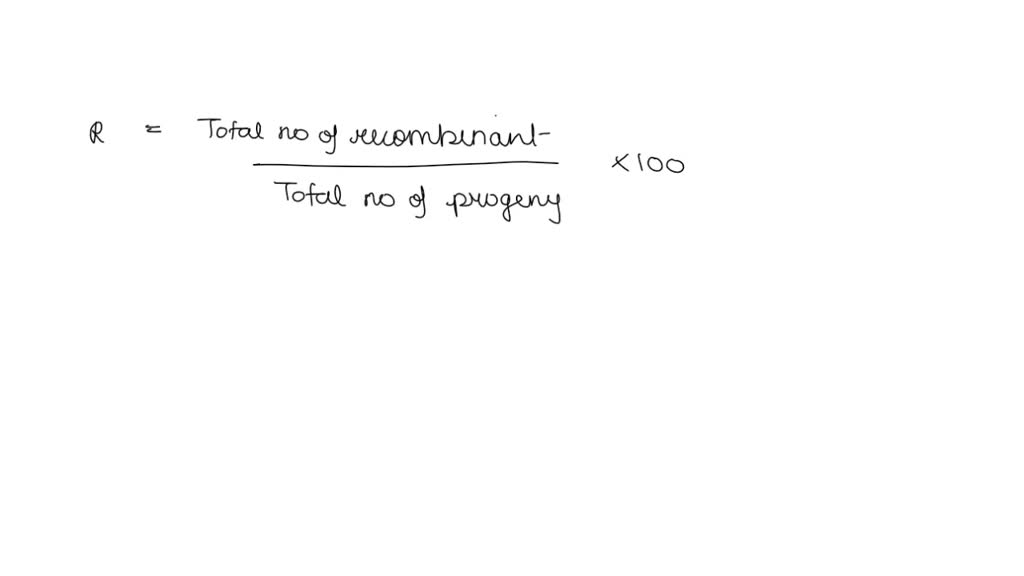 R = Total no of recombinant × 100
Total no of progeny